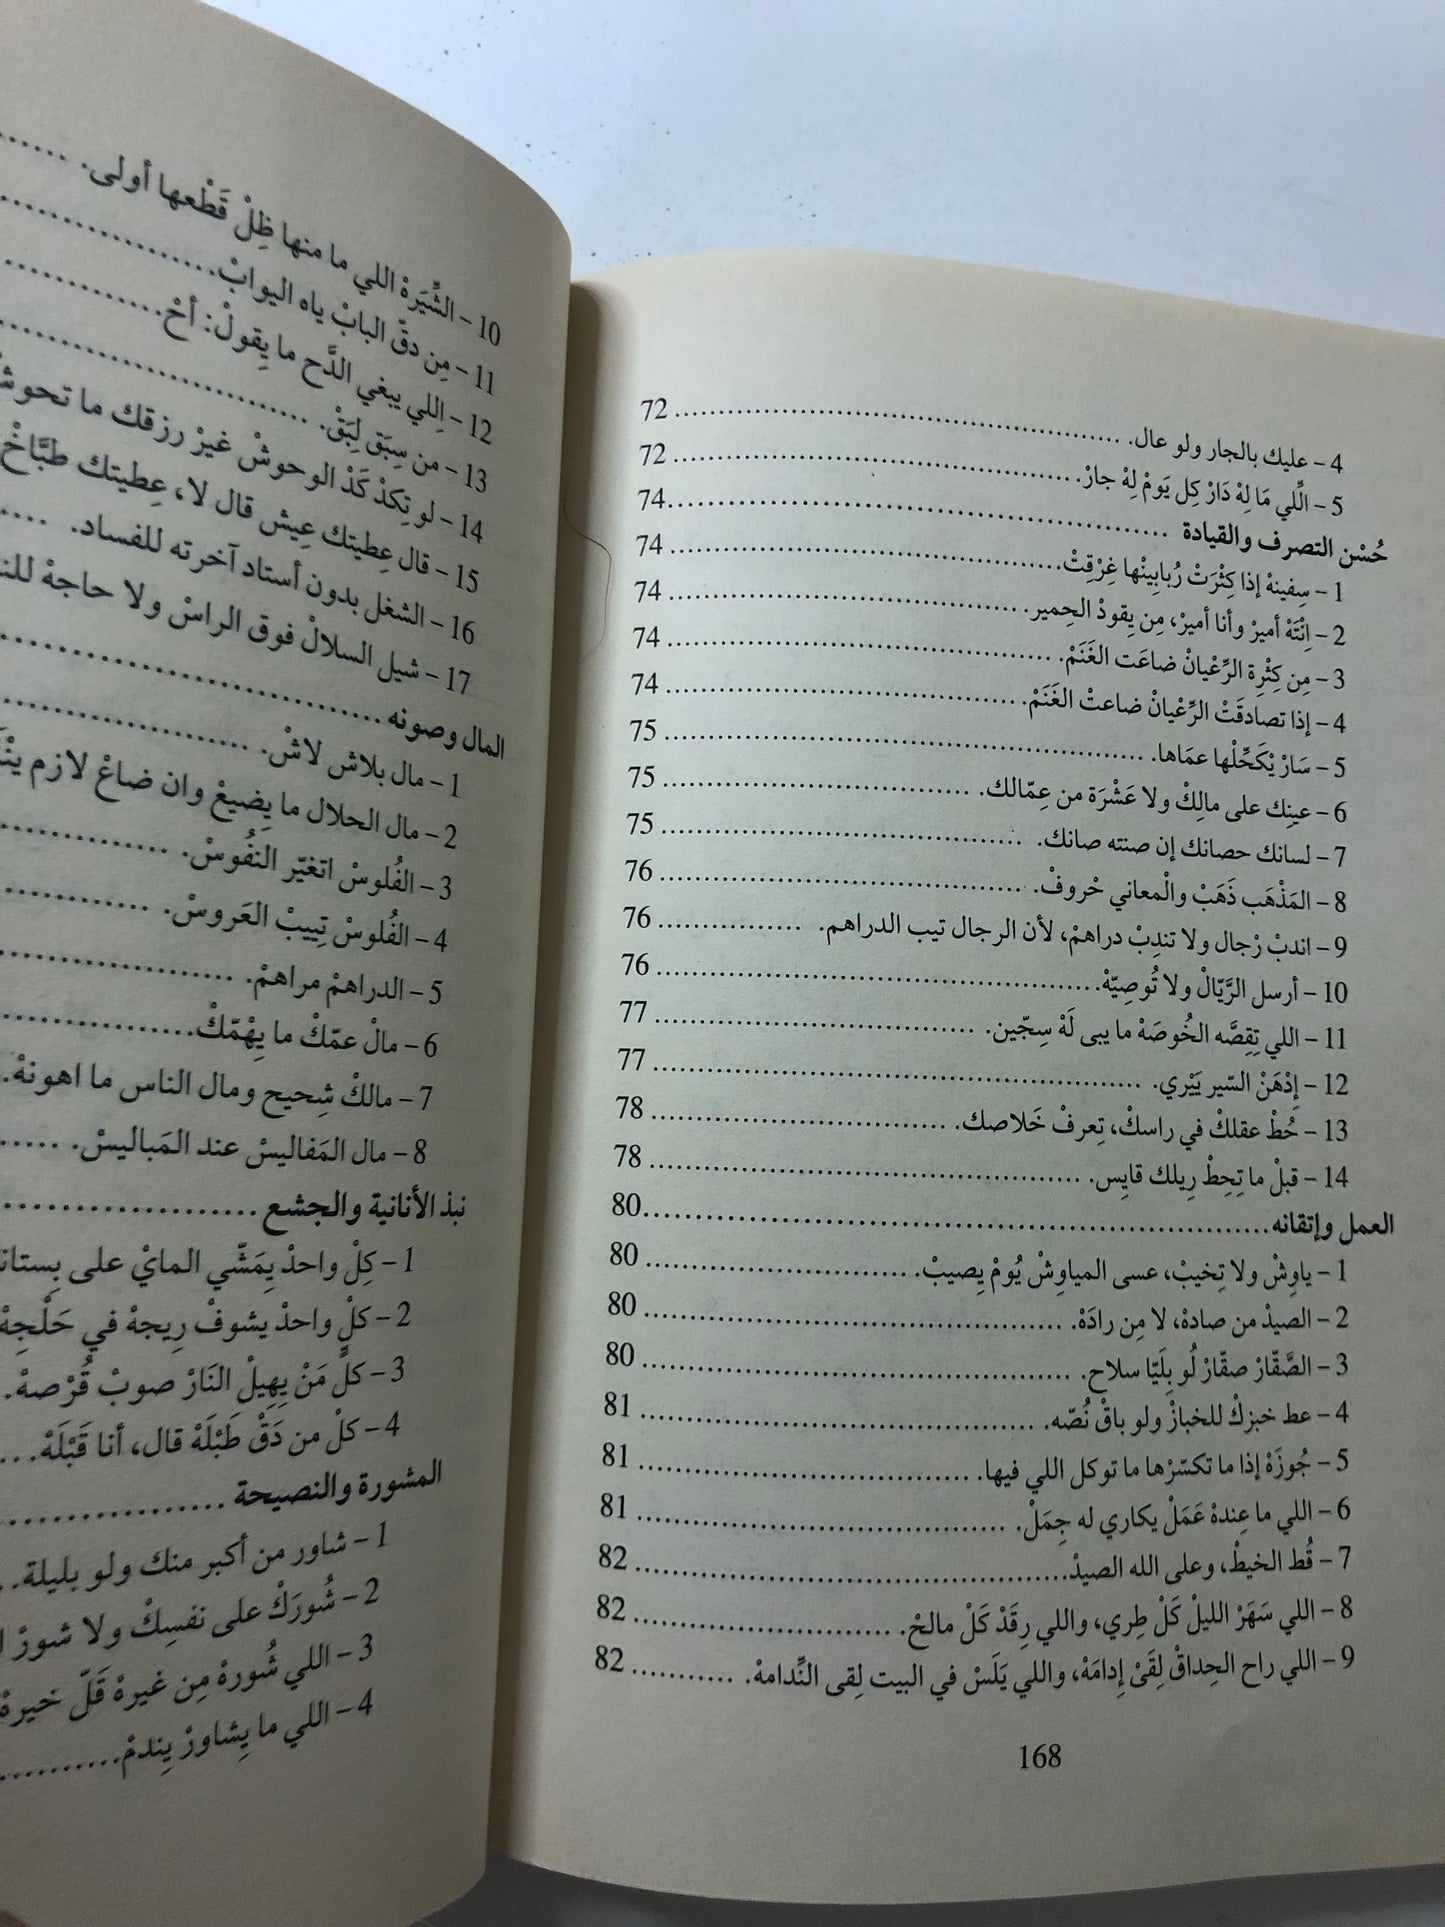 4 – عليك بالجار ولو عال. .......... 72
5 – الِّلي مَا لِهْ دَارْ كِل يَومْ لِهْ جارْ. .......... 72
حُسْن التصرف والقيادة .......... 74
1 – سِفينهْ إذا كِثْرَتْ رُبابِينْها غِرْقِتْ. .......... 74
2 – اِنْتَهْ أميرْ وأنا أميرْ، مِن يِقودْ الحِمير. .......... 74
3 – مِن كِثْرِة الرِّعْيانْ ضاعَت الغَنَمْ. .......... 74
4 – إذا تصادقَتْ الرِّعْيانْ ضاعتْ الغَنَمْ. .......... 74
5 – سَارْ يْكَحِّلْها عمَاها. .......... 75
6 – عينِك على مالِكْ ولا عَشْرَة من عِمّالك. .......... 75
7 – لسانك حصانك إن صنته صانك. .......... 75
8 – المَذْهَب ذَهَبْ والْمعاني حْروفْ. .......... 76
9 – اندبْ رْجال ولا تندِبْ دراهمْ، لأن الرجال تيب الدراهم. .......... 76
10 – أرسل الرَّيّالْ ولا تُوصِيّهْ. .......... 76
11 – اللي تِقِصَّه الخُوصَهْ ما يبى لَهْ سِچّين. .......... 77
12 – إِدْهَنْ السّير يَيْري. .......... 77
13 – حُطْ عقلكْ في راسكْ، تِعرفْ خَلاصك. .......... 78
14 – قبلْ ما تِحِطْ رِيلك قايِس. .......... 78
العمل وإتقانه .......... 80
1 – ياوِشْ ولا تِخيبْ، عسى المياوِشْ يُومْ يِصيبْ. .......... 80
2 – الصيدْ من صادهْ، لا مِن رادَهْ. .......... 80
3 – الصَّقّارْ صقّارْ لُو بِلَيّا سلاح. .......... 80
4 – عط خبزكْ للخبازْ ولو باقْ نُصّه. .......... 81
5 – جُوزَهْ إذا ما تكسّرْها ما توكل اللي فيها. .......... 81
6 – اللي ما عِندهْ عَمَلْ يكاري له جِمَلْ. .......... 81
7 – قُط الخيطْ، وعلى الله الصيدْ. .......... 82
8 – اللي سَهَرْ الليلْ كَلْ طِري، واللي رِقَدْ كَلْ مالحْ. .......... 82
9 – اللي راح الحِداقْ لِقَىْ إِدامَهْ، واللي يَلَسْ في البيت لِقى النِّدامهْ. .......... 82
168
10 – الشِّيَرةْ اللي ما منها ظِلْ قَطْعها أولى. ..........
11 – مِن دقّ البابْ ياه اليوابْ. ..........
12 – اِللي يبغي الدَّح ما يِقولْ: أحْ. ..........
13 – من سِبَق لِبَقْ. ..........
14 – لو تِكدْ كَدْ الوحوشْ غيرْ رزقك ما تحوش
15 – قال عِطيتك عِيش قال لا، عِطيتك طبَّاخْ
16 – الشغل بدون أستاد آخرته للفساد. ..........
17 – شيل السلالْ فوق الراسْ ولا حاجهْ
المال وصونه ..........
1 – مال بلاش لاشْ. ..........
2 – مال الحلال ما يِضيعْ وان ضاعْ لازم
3 – الفُلوسْ اتغيّر النفُوسْ. ..........
4 – الفُلوسْ تِييبْ العَروسْ. ..........
5 – الدراهمْ مراهمْ. ..........
6 – مالْ عمّكْ ما يِهْمّكْ. ..........
7 – مالكْ شِحيح ومال الناس ما اهونهْ.
8 – مال المَفاليسْ عند المَباليسْ. ..........
نبذ الأنانية والجشع ..........
1 – كِلْ واحدْ يِمَشّي المايْ على
2 – كلٍ واحدْ يشوفْ رِيجهْ في حَلْجِهْ
3 – كلْ مَنْ يِهِيلْ النَارْ صوبْ قُرْصهْ.
4 – كلْ من دَقْ طَبْلَهْ قال، أنا قَبْلَهْ. ...
المشورة والنصيحة ..........
1 – شاور من أكبر منك ولو بليلة. ..
2 – شُورَكْ على نفسِكْ ولا شورْ
3 – اللي شُورهْ مِن غيرهْ قَلّ خيرهْ
4 – اللي ما يِشاورْ يِندمْ. ..........